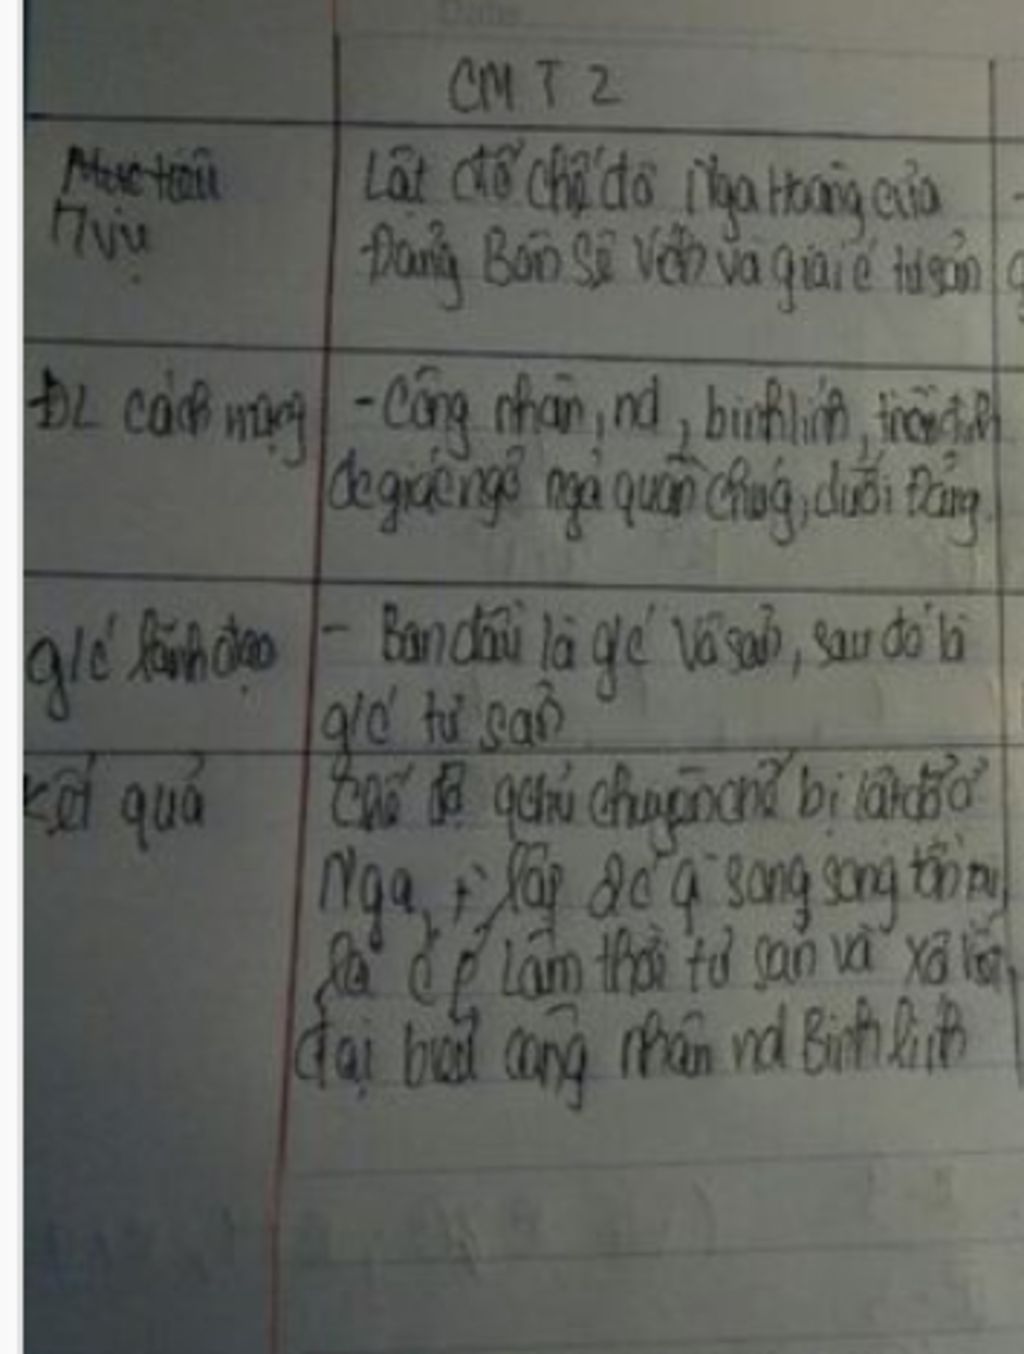 CM T 2
Mục tiêu
Nvụ
Lật đổ chế độ Nga Hoàng của
Đảng Bôn Sê Vích và giai c tư sản
ĐL cách mạng
- Công nhân, nd, binh lính,
de giác ngộ quần chúng, dưới Đảng
g/c lãnh đạo
- Ban đầu là g/c Vô sản, sau đó là
g/c tư sản
Kết quả
Chế độ qchủ chuyên chế bị lật đổ ở
Nga, + lập 2c q song song tồn tại
là c p Lâm thời tư sản và xô viết,
đại biểu công nhân nd Binh lính